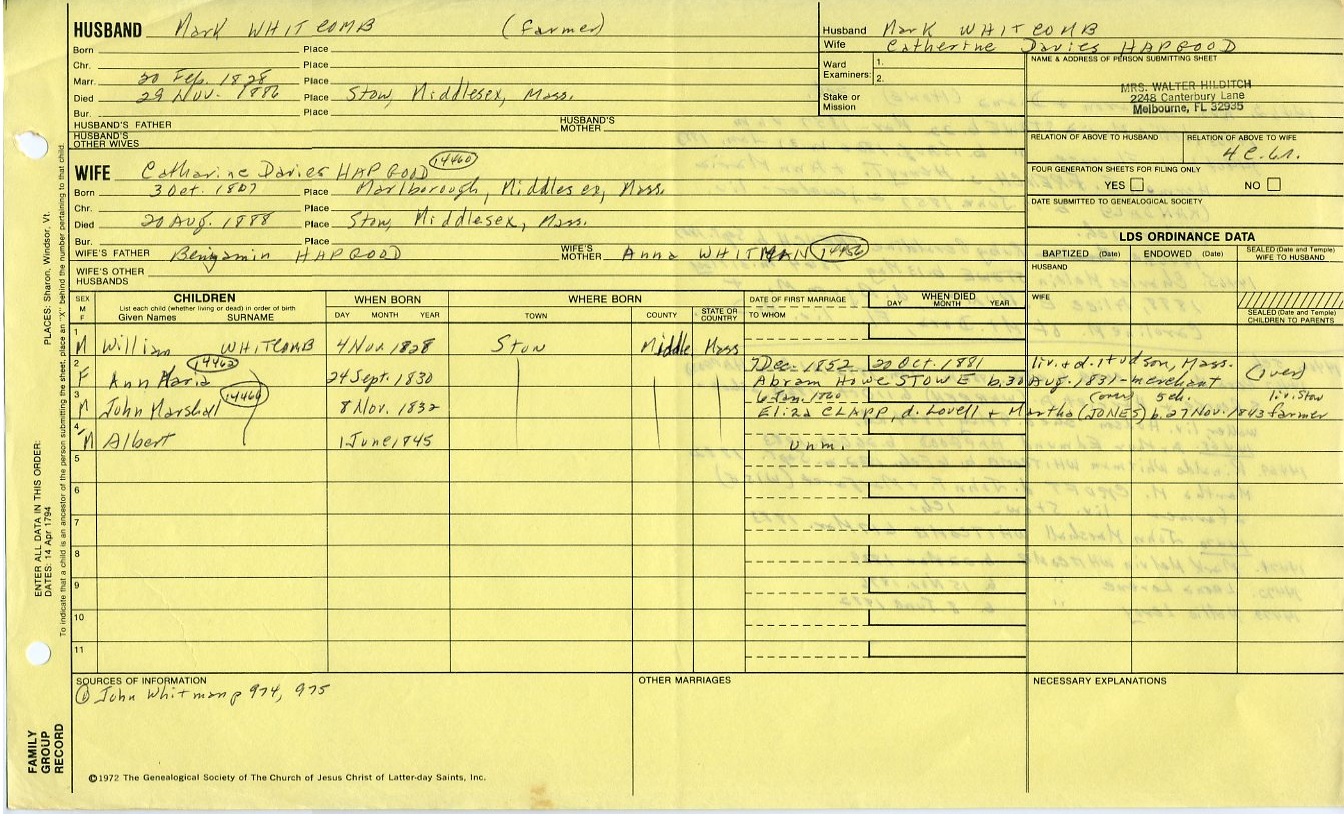 HUSBAND Mark WHITCOMB (farmer)
Born Place
Chr. Place
Marr. 20 Feb. 1828 Place
Died 29 Nov. 1886 Place Stow, Middlesex, Mass.
Bur. Place
HUSBAND'S FATHER HUSBAND'S MOTHER
HUSBAND'S OTHER WIVES
Husband Mark WHITCOMB
Wife Catherine Davies HAPGOOD
Ward Examiners: 1. 2.
Stake or Mission
NAME & ADDRESS OF PERSON SUBMITTING SHEET
MRS. WALTER HILDITCH
2248 Canterbury Lane
Melbourne, FL 32935
RELATION OF ABOVE TO HUSBAND RELATION OF ABOVE TO WIFE
4C.6r.
FOUR GENERATION SHEETS FOR FILING ONLY
YES NO
DATE SUBMITTED TO GENEALOGICAL SOCIETY
WIFE Catharine Davies HAPGOOD 14460
Born 3 Oct. 1807 Place Marlborough, Middlesex, Mass.
Chr. Place
Died 20 Aug. 1888 Place Stow, Middlesex, Mass.
Bur. Place
WIFE'S FATHER Benjamin HAPGOOD WIFE'S MOTHER Anna WHITMAN 14456
WIFE'S OTHER HUSBANDS
LDS ORDINANCE DATA
BAPTIZED (Date) ENDOWED (Date) SEALED (Date and Temple) WIFE TO HUSBAND
HUSBAND
WIFE
SEALED (Date and Temple) CHILDREN TO PARENTS
SEX M F CHILDREN WHEN BORN WHERE BORN DATE OF FIRST MARRIAGE WHEN DIED
List each child (whether living or dead) in order of birth
Given Names SURNAME DAY MONTH YEAR TOWN COUNTY STATE OR COUNTRY TO WHOM DAY MONTH YEAR
1 M William WHITCOMB 4 Nov. 1828 Stow Middle. Mass
2 F Ann Maria 14462 24 Sept. 1830 7 Dec. 1852 20 Oct. 1881 liv. + d. Hudson, Mass. (over)
Abram Howe STOWE b. 30 Aug. 1831 - merchant
3 M John Marshall 14464 8 Nov. 1832 6 Jan. 1860 (over) 5ch. liv. Stow
Eliza CLAPP, d. Lovell + Martha (JONES) b. 27 Nov. 1843 farmer
4 M Albert 1 June, 1845 unm.
5
6
7
8
9
10
11
SOURCES OF INFORMATION
① John Whitman p 974, 975
OTHER MARRIAGES
NECESSARY EXPLANATIONS
©1972 The Genealogical Society of The Church of Jesus Christ of Latter-day Saints, Inc.
FAMILY GROUP RECORD
ENTER ALL DATA IN THIS ORDER:
DATES: 14 Apr 1794
PLACES: Sharon, Windsor, Vt.
To indicate that a child is an ancestor of the person submitting the sheet, place an "X" behind the number pertaining to that child.